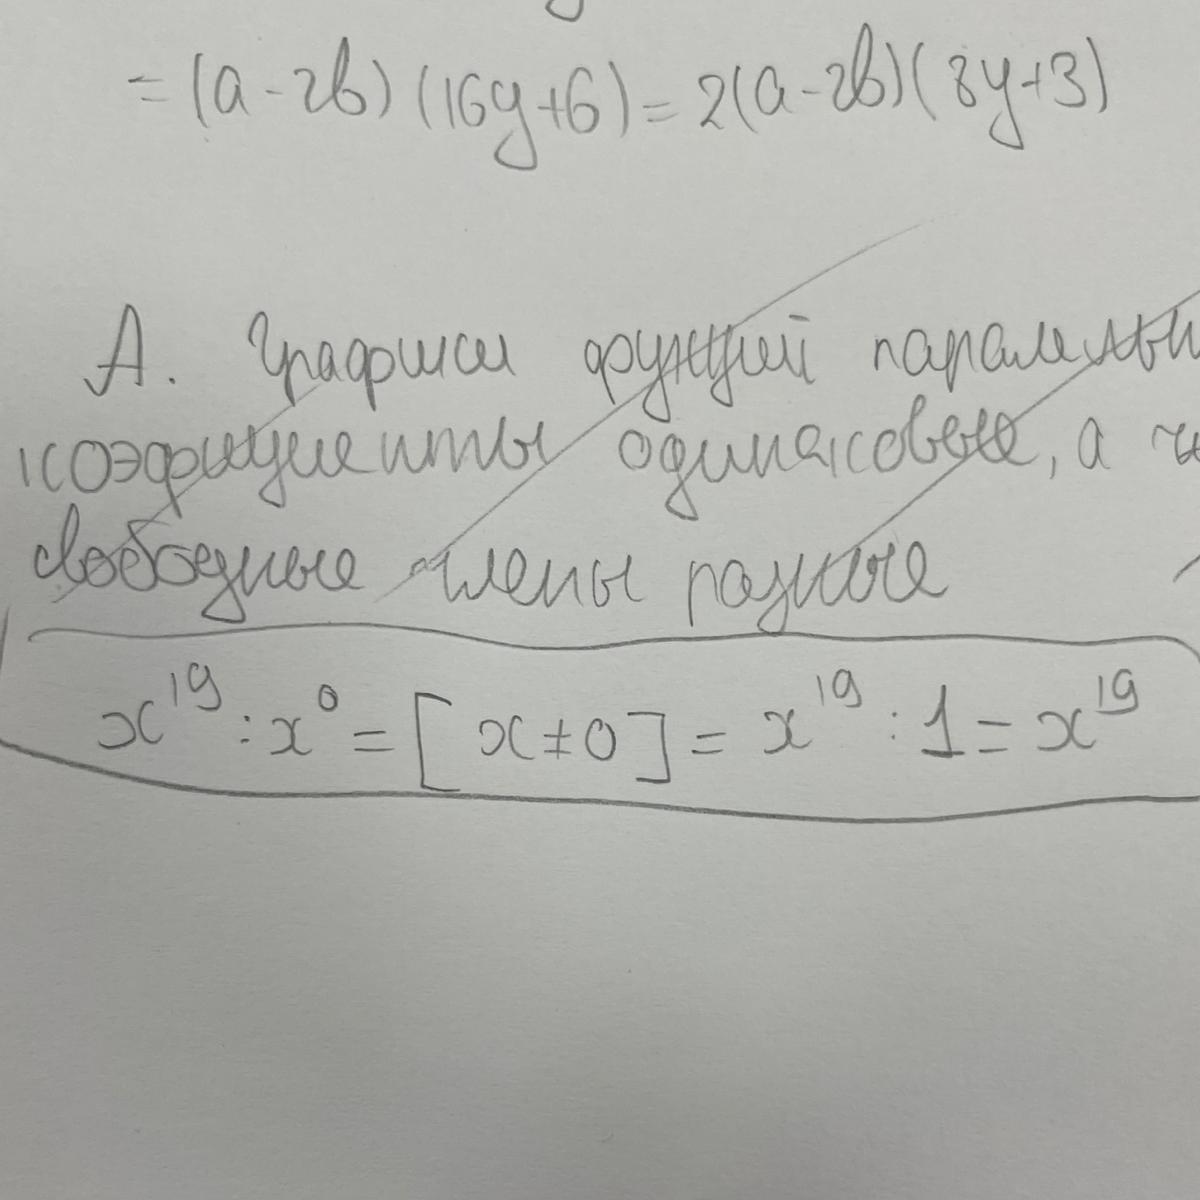 = (a - 2b) (16y+6) = 2(a - 2b) (8y+3)
А. Графики функций
коэффициенты одинаковые, а
свободные члены разные
x¹⁹ : x⁰ = [ x ≠ 0 ] = x¹⁹ : 1 = x¹⁹